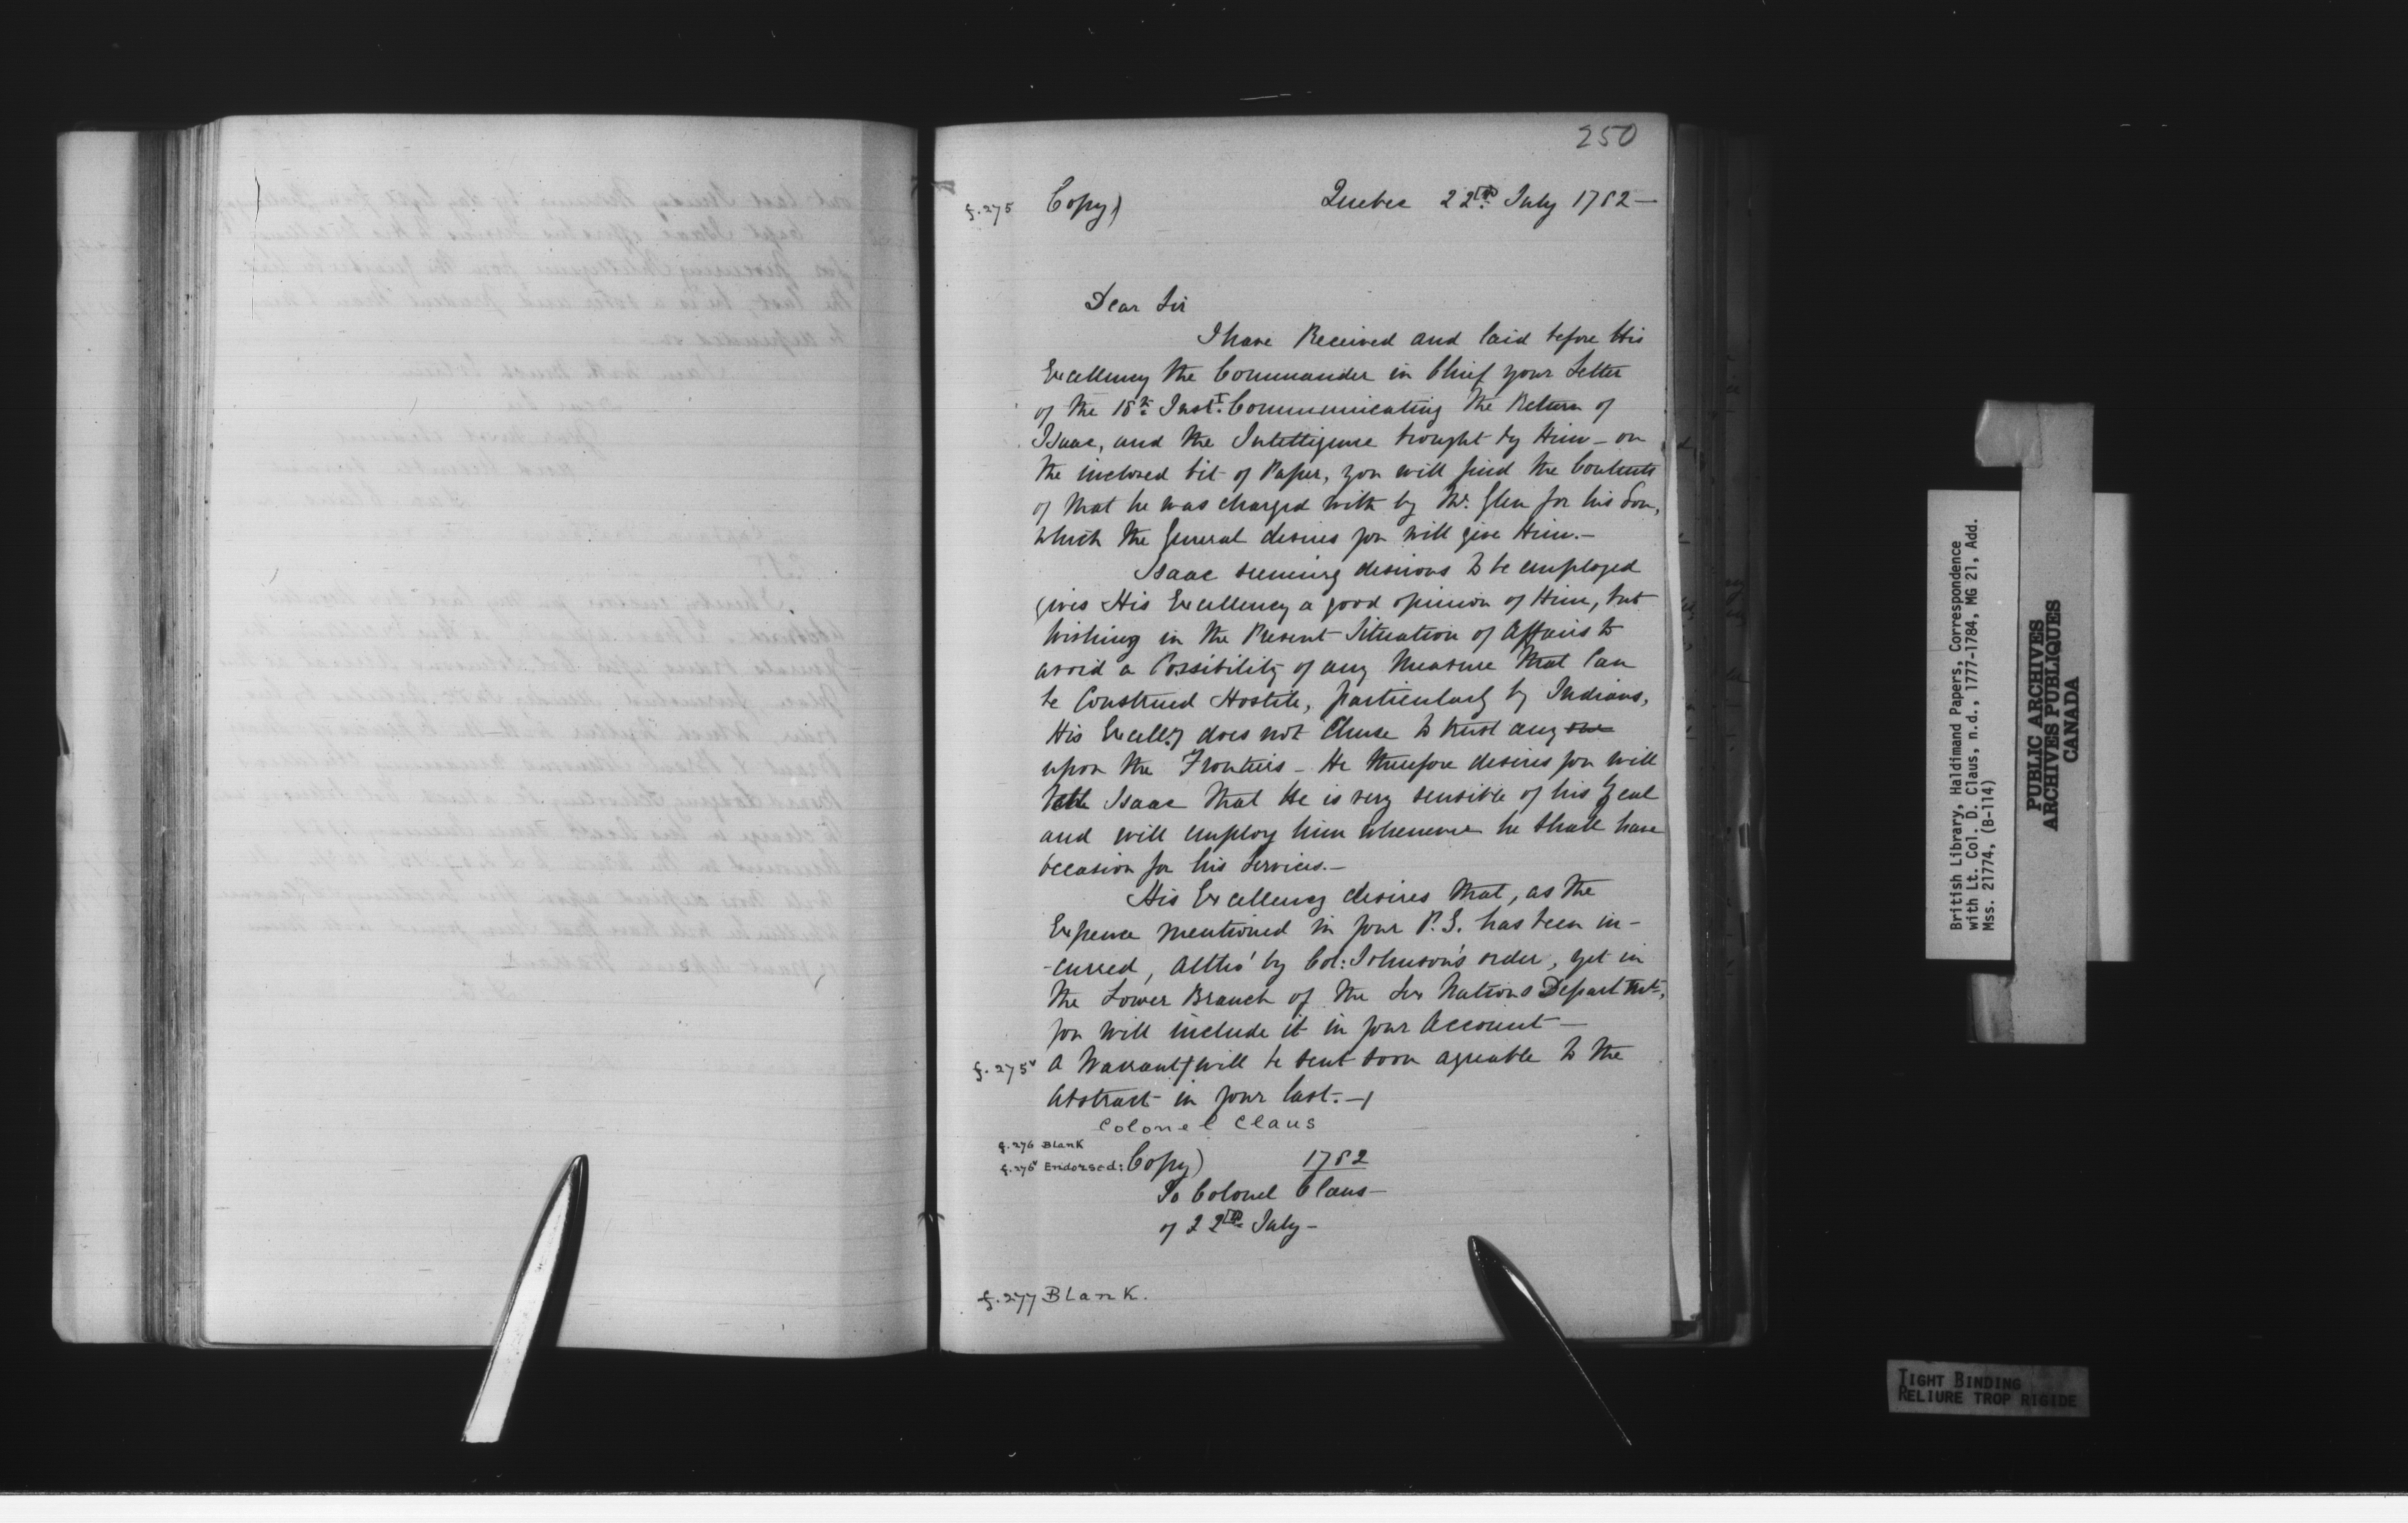 250
f.275 Copy) Quebec 22nd. July 1782—
Dear Sir
I have Received and laid before His
Excellency the Commander in Chief your Letter
of the 18th. Inst. Communicating the Return of
Isaac, and the Intelligence brought by Him - on
the inclosed bit of Paper, you will find the Contents
of that he was charged with by Mr. Glen for his Son,
which the General desires you will give Him.—
Isaac seeming desirous to be employed
gives His Excellency a good opinion of Him, but
Wishing in the Present Situation of Affairs to
avoid a Possibility of any Measure that Can
be Construed Hostile, particularly by Indians,
His Excell:y does not Chuse to trust any one
upon the Frontiers - He therefore desires you will
tell Isaac that He is very sensible of his Zeal
and will employ him whenever he shall have
occasion for his Services.—
His Excellency desires that, as the
Expence mentioned in your P.S. has been in-
-curred, altho' by Col: Johnson's order, yet in
the Lower Branch of the Six Nations Departmt.,
you will include it in your Account—
f.275v A Warrant/ will be sent soon agreable to the
Abstract in your last.—/
Colonel Claus
f.276 Blank
f.276v Endorsed: Copy) 1782
To Colonel Claus—
of 22nd. July—
f.277 Blank.
British Library, Haldimand Papers, Correspondence
with Lt. Col. D. Claus, n.d., 1777-1784, MG 21, Add.
Mss. 21774, (B-114)
PUBLIC ARCHIVES
ARCHIVES PUBLIQUES
CANADA
TIGHT BINDING
RELIURE TROP RIGIDE